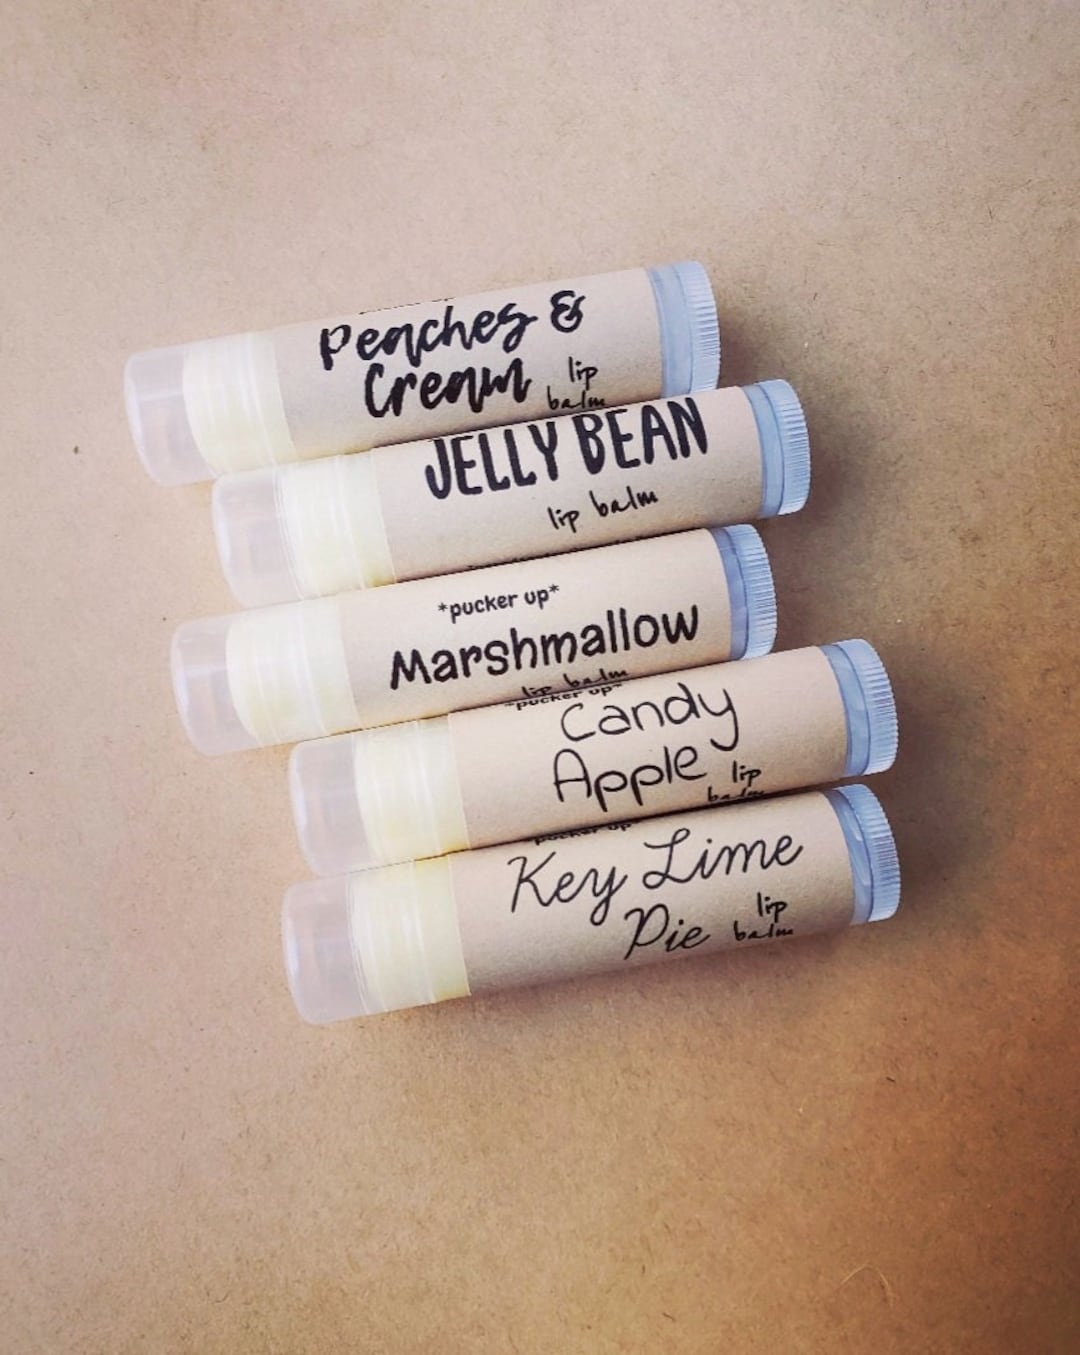 Peaches &
Cream lip
balm
JELLY BEAN
lip balm
*pucker up*
Marshmallow
lip balm
*pucker up*
Candy
Apple lip
balm
pucker up*
Key Lime
Pie lip
balm